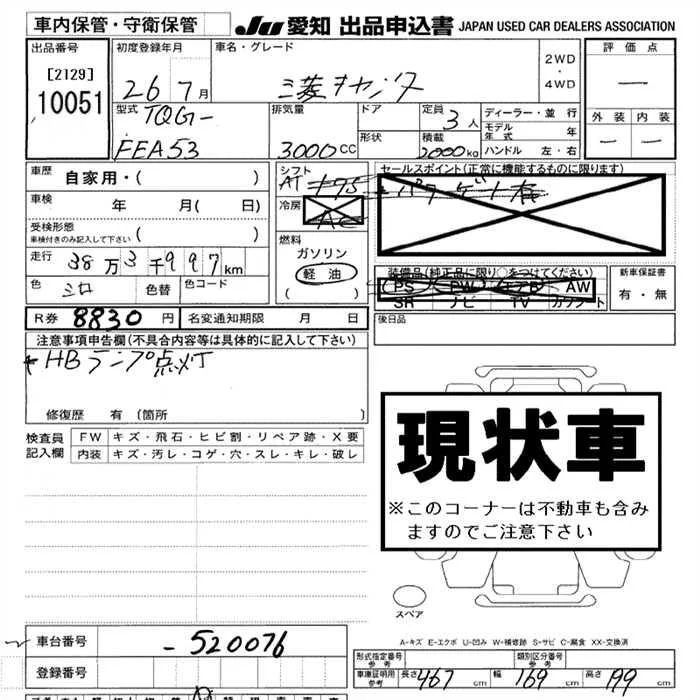 車内保管・守衛保管
JU 愛知 出品申込書 JAPAN USED CAR DEALERS ASSOCIATION
出品番号
[2129]
10051
初度登録年月
26 7月
車名・グレード
三菱キャンター
2WD
・
4WD
評価点
—
外装 内装
— —
型式
TQG-
FEA53
排気量
3000CC
ドア
形状
定員
3人
積載
2000kg
ディーラー・並行
モデル年式 年
ハンドル 左・右
車歴
自家用・( )
車検
年 月( 日)
受検形態
車検付きのみ記入して下さい ( )
走行
38万3千997km
色
シロ
色替
色コード
シフト
冷房
AC
燃料
ガソリン
軽油
( )
セールスポイント(正常に機能するものに限ります)
装備品(純正品に限り○をつけてください)
PS PW エアB AW
SR ナビ TV カワシート
新車保証書
有・無
R券 8830円
名変通知期限 月 日
後日品
注意事項申告欄(不具合内容等は具体的に記入して下さい)
HBランプ点灯
修復歴 有(箇所
検査員
記入欄
FW キズ・飛石・ヒビ割・リペア跡・X要
内装 キズ・汚レ・コゲ・穴・スレ・キレ・破レ
現状車
※このコーナーは不動車も含み
ますのでご注意下さい
スペア
A-キズ E-エクボ U-凹み W-補修跡 S-サビ C-腐食 XX-交換済
車台番号
-520076
登録番号
形式指定番号
参考
類別区分番号
参考
車庫証明用
参考
長さ 467cm
幅 169cm
高さ 199cm